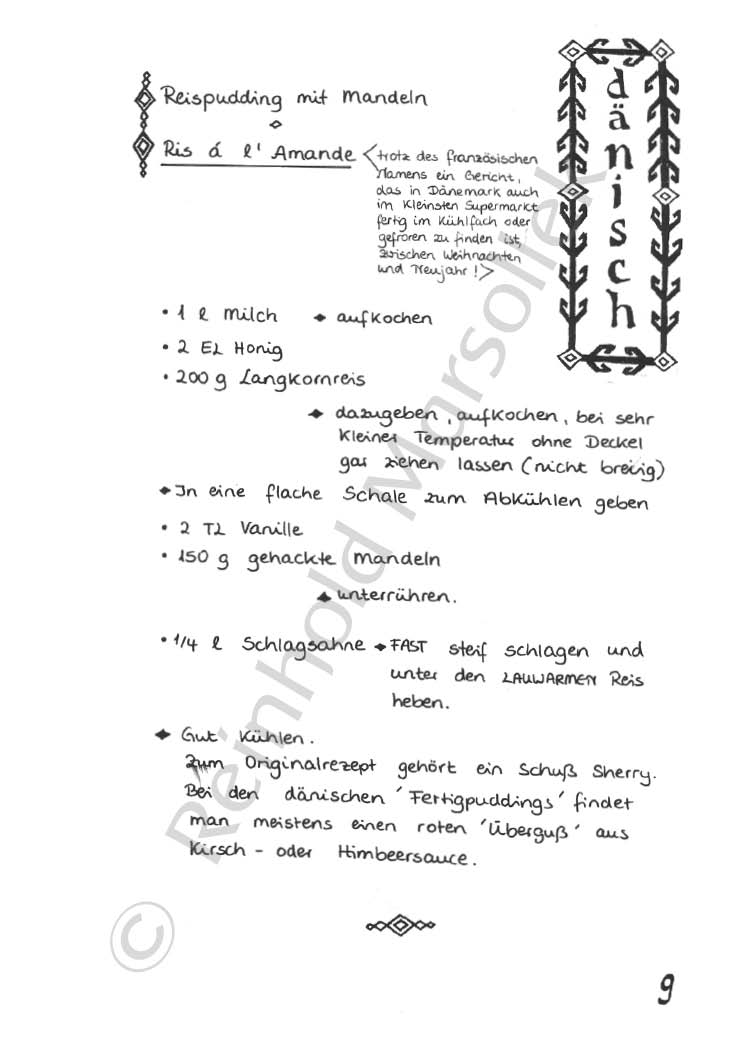 Reispudding mit Mandeln
Ris á l' Amande
<trotz des französischen
Namens ein Gericht,
das in Dänemark auch
im kleinsten Supermarkt
fertig im Kühlfach oder
gefroren zu finden ist,
zwischen Weihnachten
und Neujahr !>
dänisch
• 1 l Milch ✦ aufkochen
• 2 EL Honig
• 200 g Langkornreis
✦ dazugeben, aufkochen, bei sehr
kleiner Temperatur ohne Deckel
gar ziehen lassen (nicht breiig)
✦ In eine flache Schale zum Abkühlen geben
• 2 TL Vanille
• 150 g gehackte Mandeln
✦ unterrühren.
• 1/4 l Schlagsahne ✦ FAST steif schlagen und
unter den LAUWARMEN Reis
heben.
✦ Gut kühlen.
Zum Originalrezept gehört ein Schuß Sherry.
Bei den dänischen 'Fertigpuddings' findet
man meistens einen roten 'Überguß' aus
Kirsch- oder Himbeersauce.
© Reinhold Marsollek
9